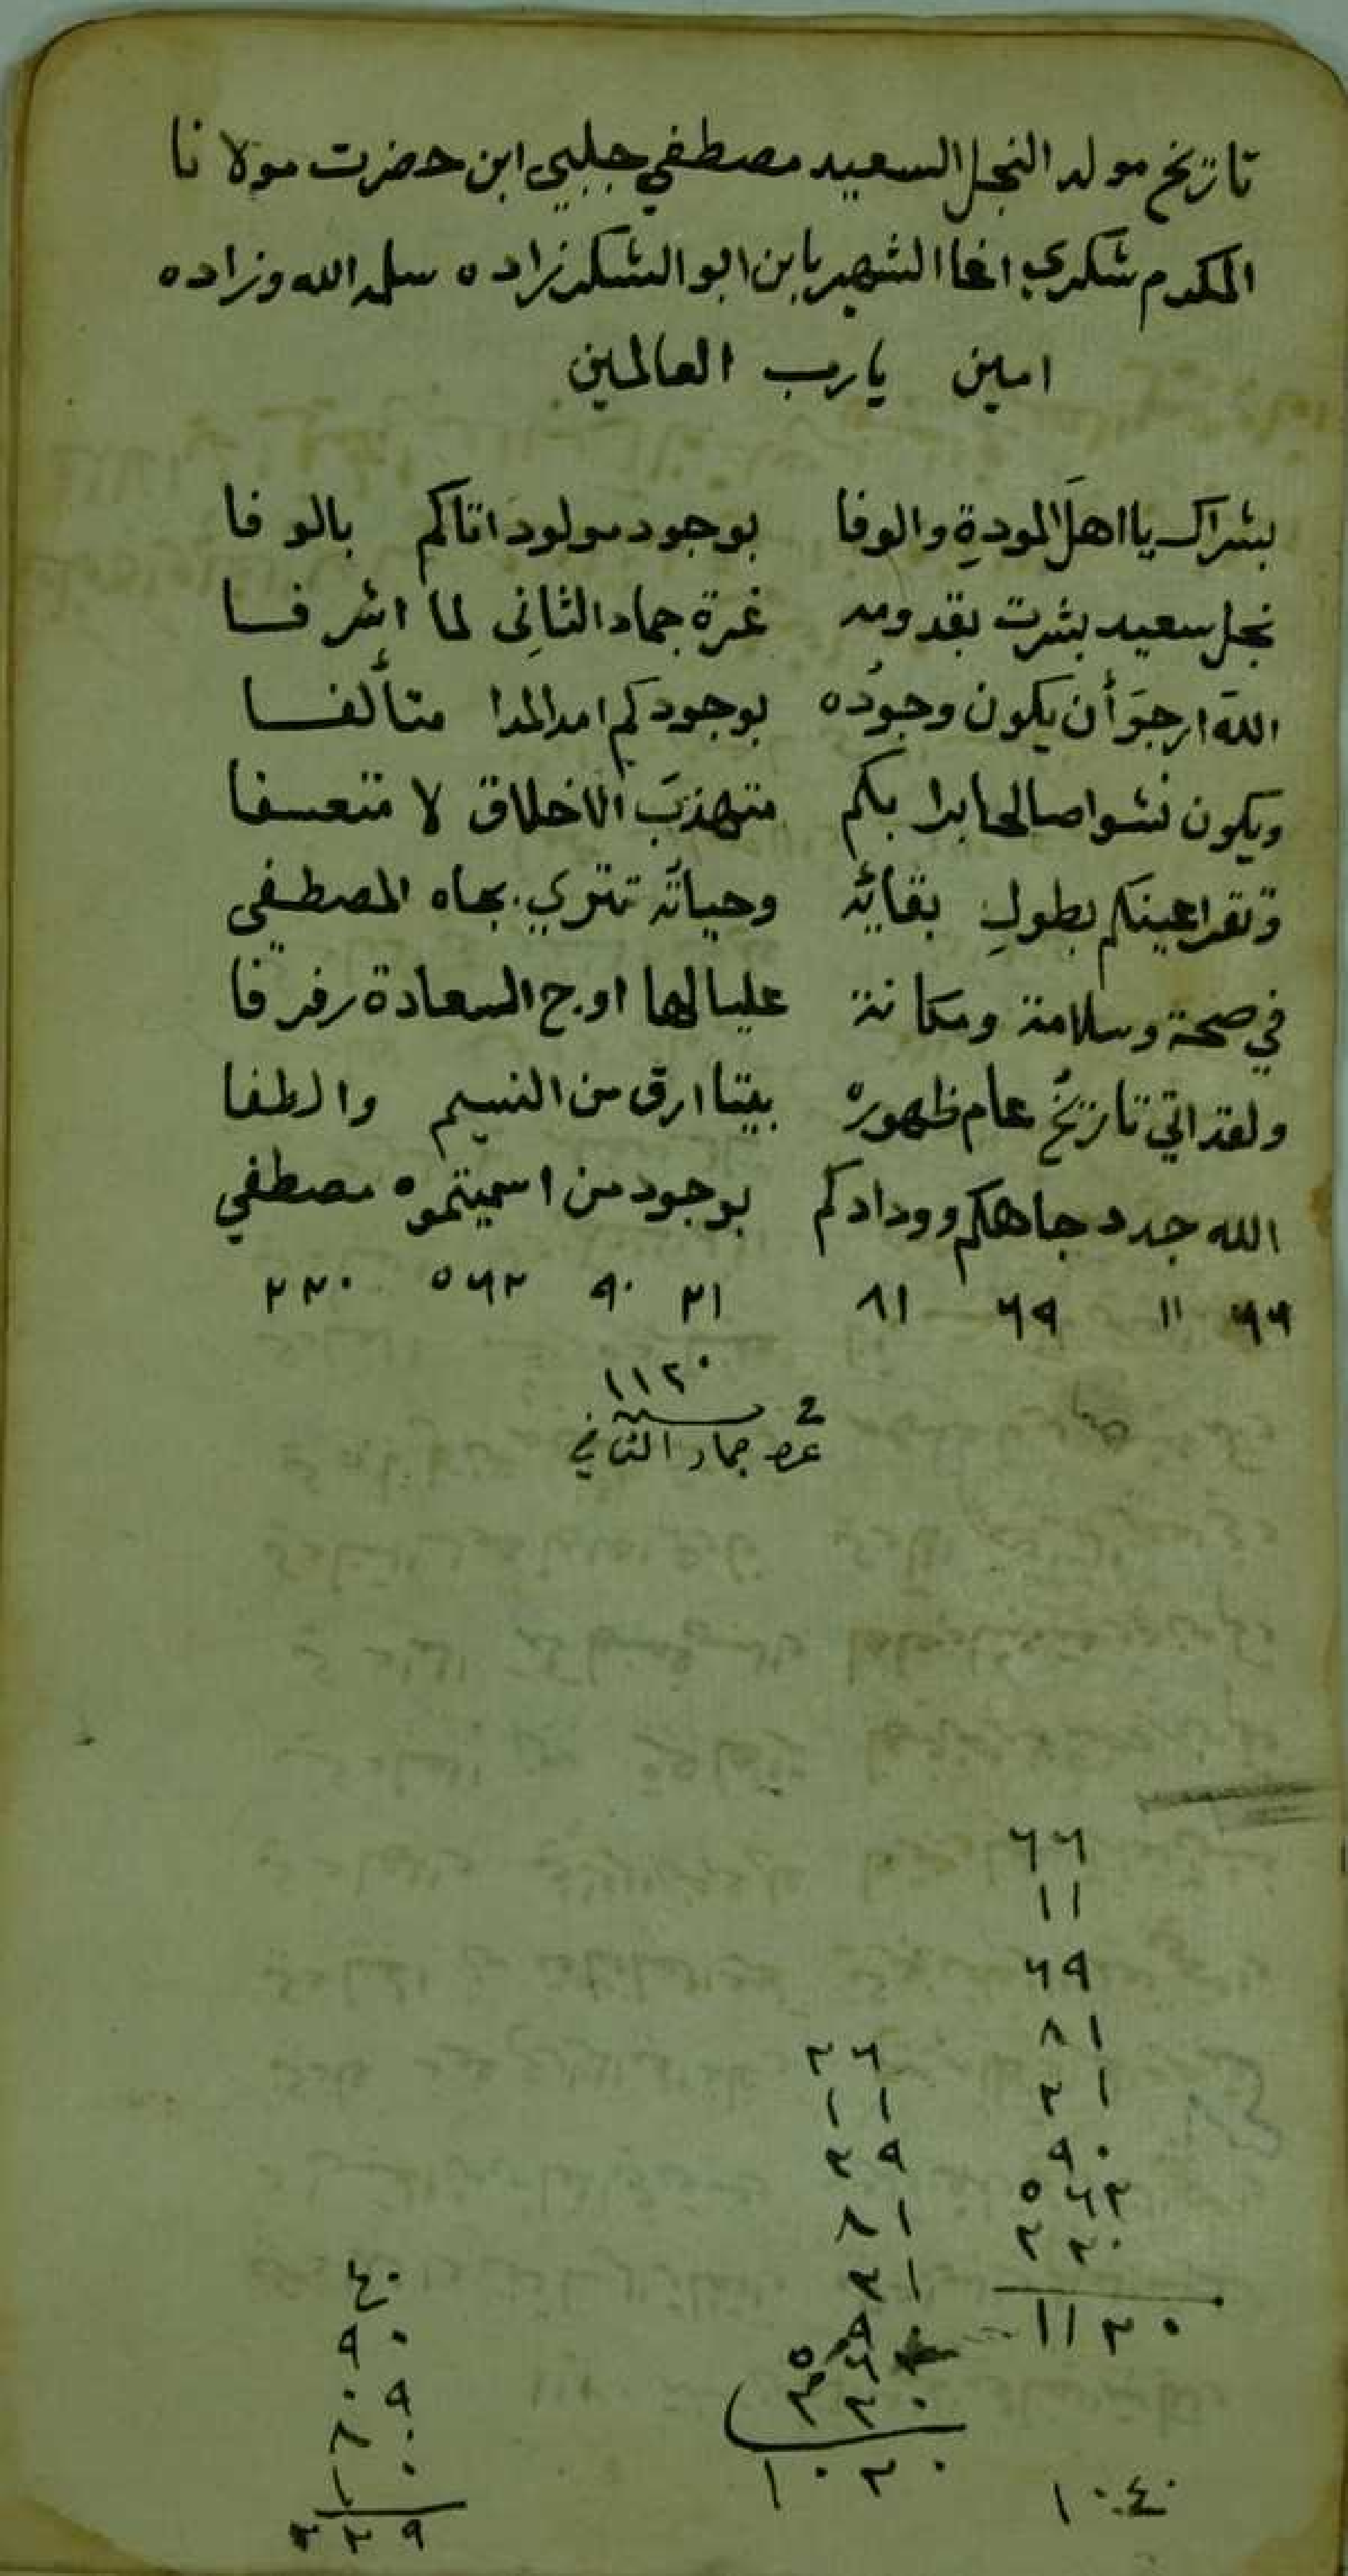 تاريخ مولد النجل السعيد مصطفي جلبي ابن حضرت مولانا
المكرم شكري اغا الشهير بابن ابو الشكر زاده سلمه الله وزاده
امين يارب العالمين
بشراك يا اهلَ المودةِ والوفا بوجود مولود اتاكم بالوفا
نجل سعيد بشرت بقدومه غرة جماد الثاني لما اشرفا
اللهَ ارجو أن يكون وجودُه بوجودكم امد المدا متألفا
ويكون نشوا صالحا برا بكم متهذبَ الاخلاق لا متعسفا
وتقر اعينكم بطولِ بقائه وحياته تتري بجاه المصطفي
في صحة وسلامة ومكانة عليا لها اوج السعادة رفرفا
ولقد اتي تاريخُ عام ظهوره بيتا ارق من النسيم والطفا
الله جدد جاهكم وودادكم بوجود من اسميتموه مصطفي
٦٦ ١١ ٦٩ ٨١ ٢١ ٩٠ ٥٦٢ ٢٢٠
١١٢٠
في سنة
غرة جماد الثاني
٦٦
١١
٦٩
٨١
٢١
٩٠
٥٦٢
٢٢٠
١١٢٠
٢٦
١١
٢٩
٨١
٢١
٩٠
٢٢٠
١٠٢٠
١٠٤٠
٤٠
٩٠
٠٩
٨٠
١٠
٢٢٩